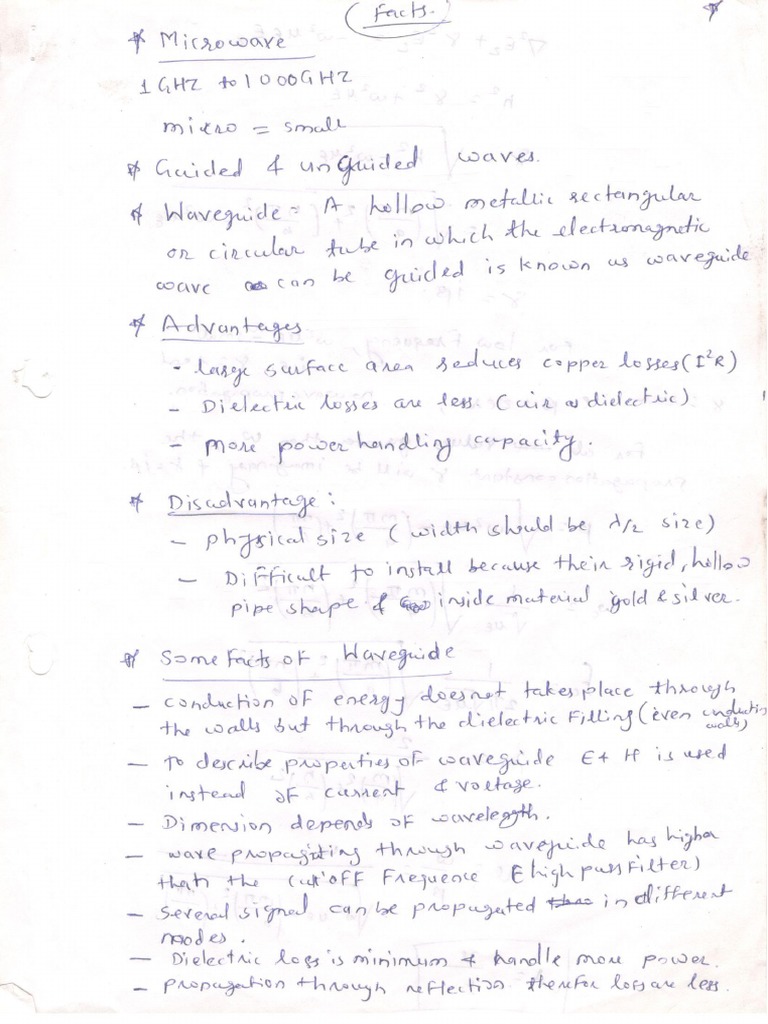 (Facts.)
* Microwave
1 GHZ to 1000GHZ
micro = small
* Guided & unguided waves.
* Waveguide = A hollow metallic rectangular
or circular tube in which the electromagnetic
wave can be guided is known as waveguide
* Advantages
- large surface area reduces copper losses (I²R)
- Dielectric losses are less (air dielectric)
- More power handling capacity.
* Disadvantage :
- physical size ( width should be λ/2 size)
- Difficult to install because their rigid, hollow
pipe shape & inside material gold & silver.
* Some facts of Waveguide
- conduction of energy does not takes place through
the walls but through the dielectric filling (even conducting
walls)
- to describe properties of waveguide E & H is used
instead of current & voltage.
- Dimension depends of wavelegth.
- wave propagating through waveguide has higher
than the cut off Frequence (high pass filter)
- several signal can be propagated in different
modes.
- Dielectric loss is minimum & handle more power.
- propagation through reflection therefor loss are less.